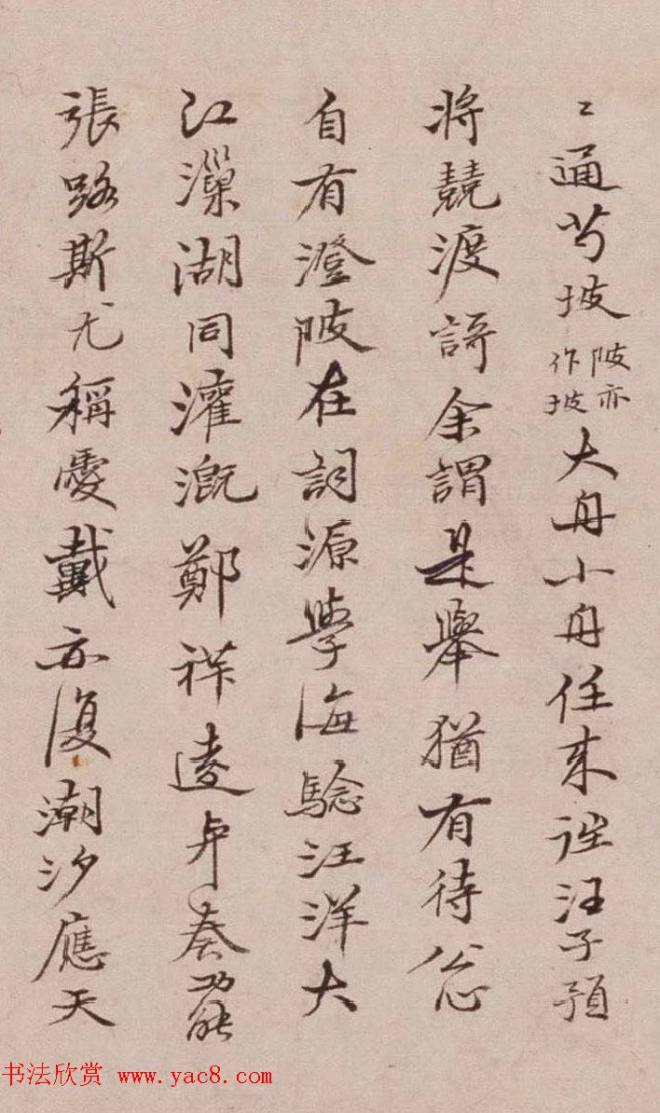 〻通芍坡陂亦作坡大舟小舟任来汪子預
將競渡誇余謂是舉猶有待公心
自有澄陂在詞源學海驗汪洋大
江漅湖同灌溉鄭祥遠奏功能
張路斯尤稱愛戴亦復潮汐應天
书法欣赏 www.yac8.com